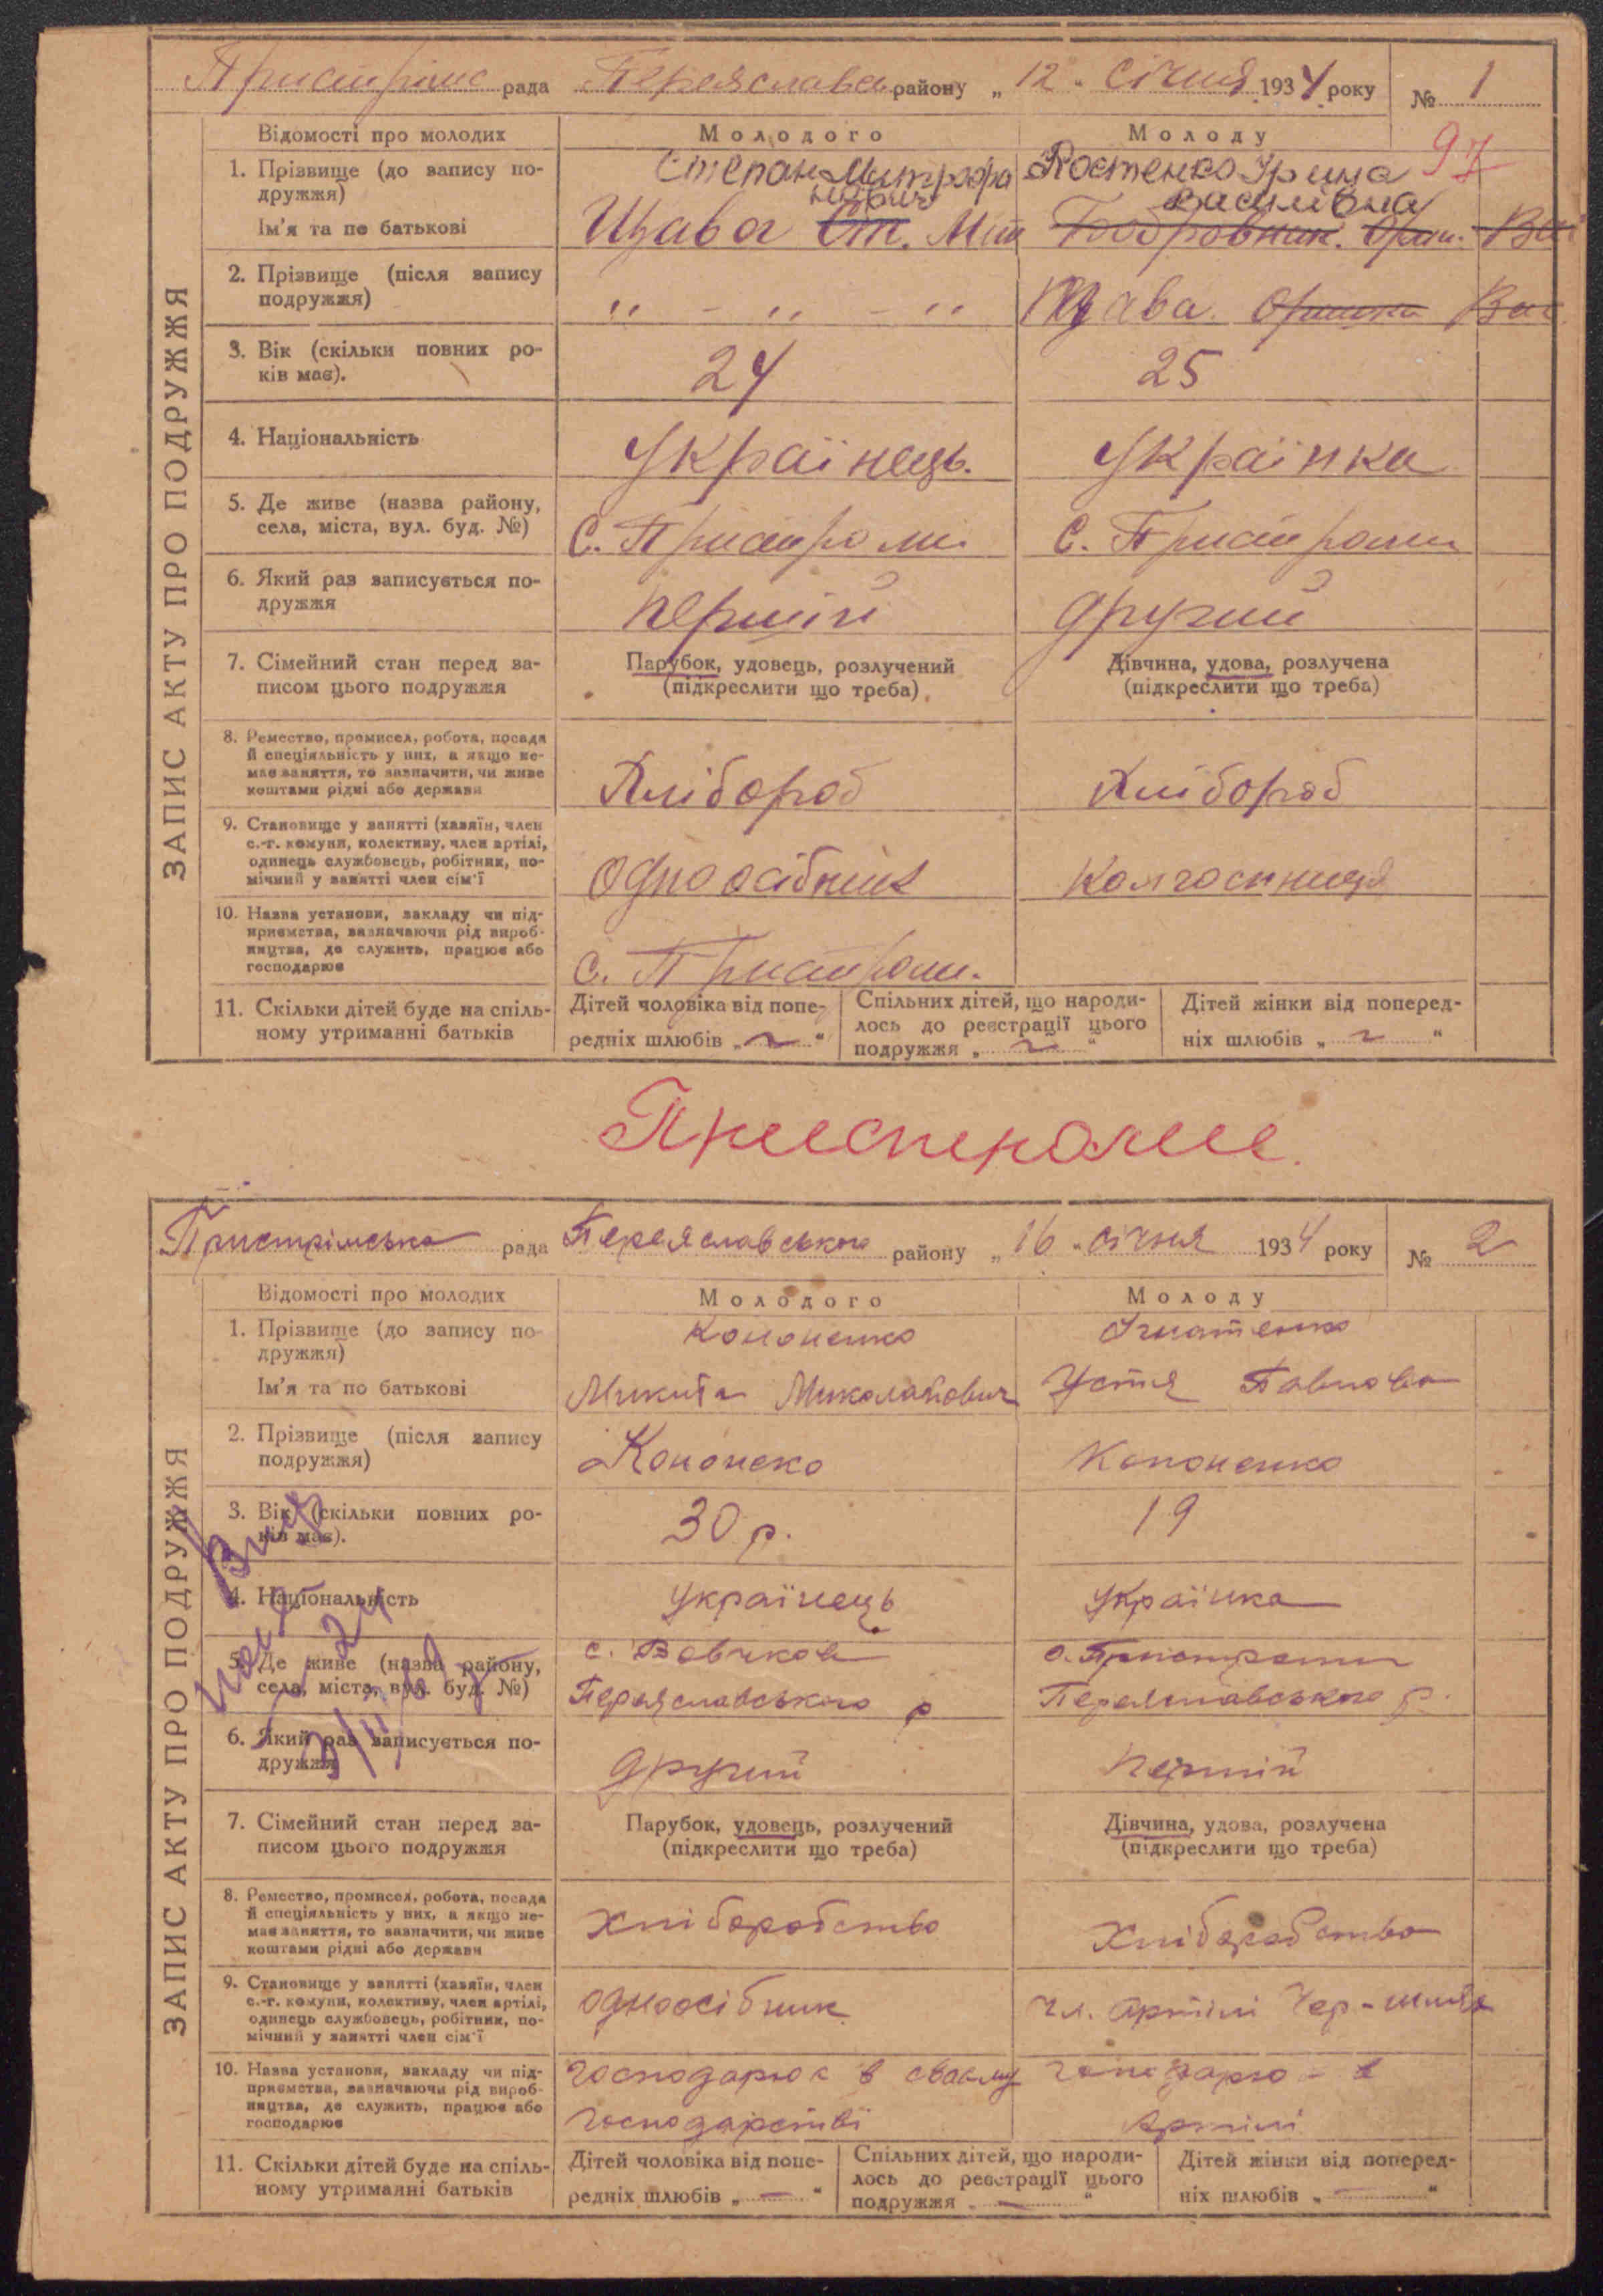 Пристрімс рада Переяславск району „ 12 „ Січня 1934 року № 1
97
Відомості про молодих
Молодого
Молоду
1. Прізвище (до запису по-
дружжя)
Ім'я та по батькові
Степан Митрофа
нович
Щава Ст. Мит
Костенко Ірина
Василівна
Бобровник. Ориш. Вас
2. Прізвище (після запису
подружжя)
„ - „ - „
Щава. Оришка Вас
3. Вік (скільки повних ро-
ків має).
24
25
4. Національність
Українець.
Українка
5. Де живе (назва району,
села, міста, вул. буд. №)
С. Пристроми
С. Пристроми
6. Який раз записується по-
дружжя
перший
другий
7. Сімейний стан перед за-
писом цього подружжя
Парубок, удовець, розлучений
(підкреслити що треба)
Дівчина, удова, розлучена
(підкреслити що треба)
8. Ремество, промисел, робота, посада
й спеціяльність у них, а якщо не-
має заняття, то зазначити, чи живе
коштами рідні або держави
Хлібороб
Хлібороб
9. Становище у занятті (хазяїн, член
с.-г. комуни, колективу, член артілі,
одинець службовець, робітник, по-
мічний у занятті член сім'ї
Одноосібник
Колгоспниця
10. Назва установи, закладу чи під-
приємства, зазначаючи рід вироб-
ництва, де служить, працює або
господарює
С. Пристроми.
11. Скільки дітей буде на спіль-
ному утриманні батьків
Дітей чоловіка від попе-
редніх шлюбів „ ~ “
Спільних дітей, що народи-
лось до реєстрації цього
подружжя „ ~ “
Дітей жінки від поперед-
ніх шлюбів „ ~ “
ЗАПИС АКТУ ПРО ПОДРУЖЖЯ
Пристроми.
Пристрімська рада Переяславського району „ 16 „ січня 1934 року № 2
Відомості про молодих
Молодого
Молоду
1. Прізвище (до запису по-
дружжя)
Ім'я та по батькові
Кононенко
Микита Миколайович
Ігнатенко
Устя Павлова
2. Прізвище (після запису
подружжя)
Кононеко
Кононенко
3. Вік (скільки повних ро-
ків має).
30 р.
19
4. Національність
Українець
Українка
5. Де живе (назва району,
села, міста, вул. буд. №)
с. Вовчков
Переяславського р
с. Пристроми
Переяславського р.
6. Який раз записується по-
дружжя
другий
перший
7. Сімейний стан перед за-
писом цього подружжя
Парубок, удовець, розлучений
(підкреслити що треба)
Дівчина, удова, розлучена
(підкреслити що треба)
8. Ремество, промисел, робота, посада
й спеціяльність у них, а якщо не-
має заняття, то зазначити, чи живе
коштами рідні або держави
Хліборобство
Хліборобство
9. Становище у занятті (хазяїн, член
с.-г. комуни, колективу, член артілі,
одинець службовець, робітник, по-
мічний у занятті член сім'ї
одноосібник
чл. артілі
10. Назва установи, закладу чи під-
приємства, зазначаючи рід вироб-
ництва, де служить, працює або
господарює
господарює в своєму
господарстві
в
Артілі
11. Скільки дітей буде на спіль-
ному утриманні батьків
Дітей чоловіка від попе-
редніх шлюбів „ — “
Спільних дітей, що народи-
лось до реєстрації цього
подружжя „ — “
Дітей жінки від поперед-
ніх шлюбів „ — “
ЗАПИС АКТУ ПРО ПОДРУЖЖЯ